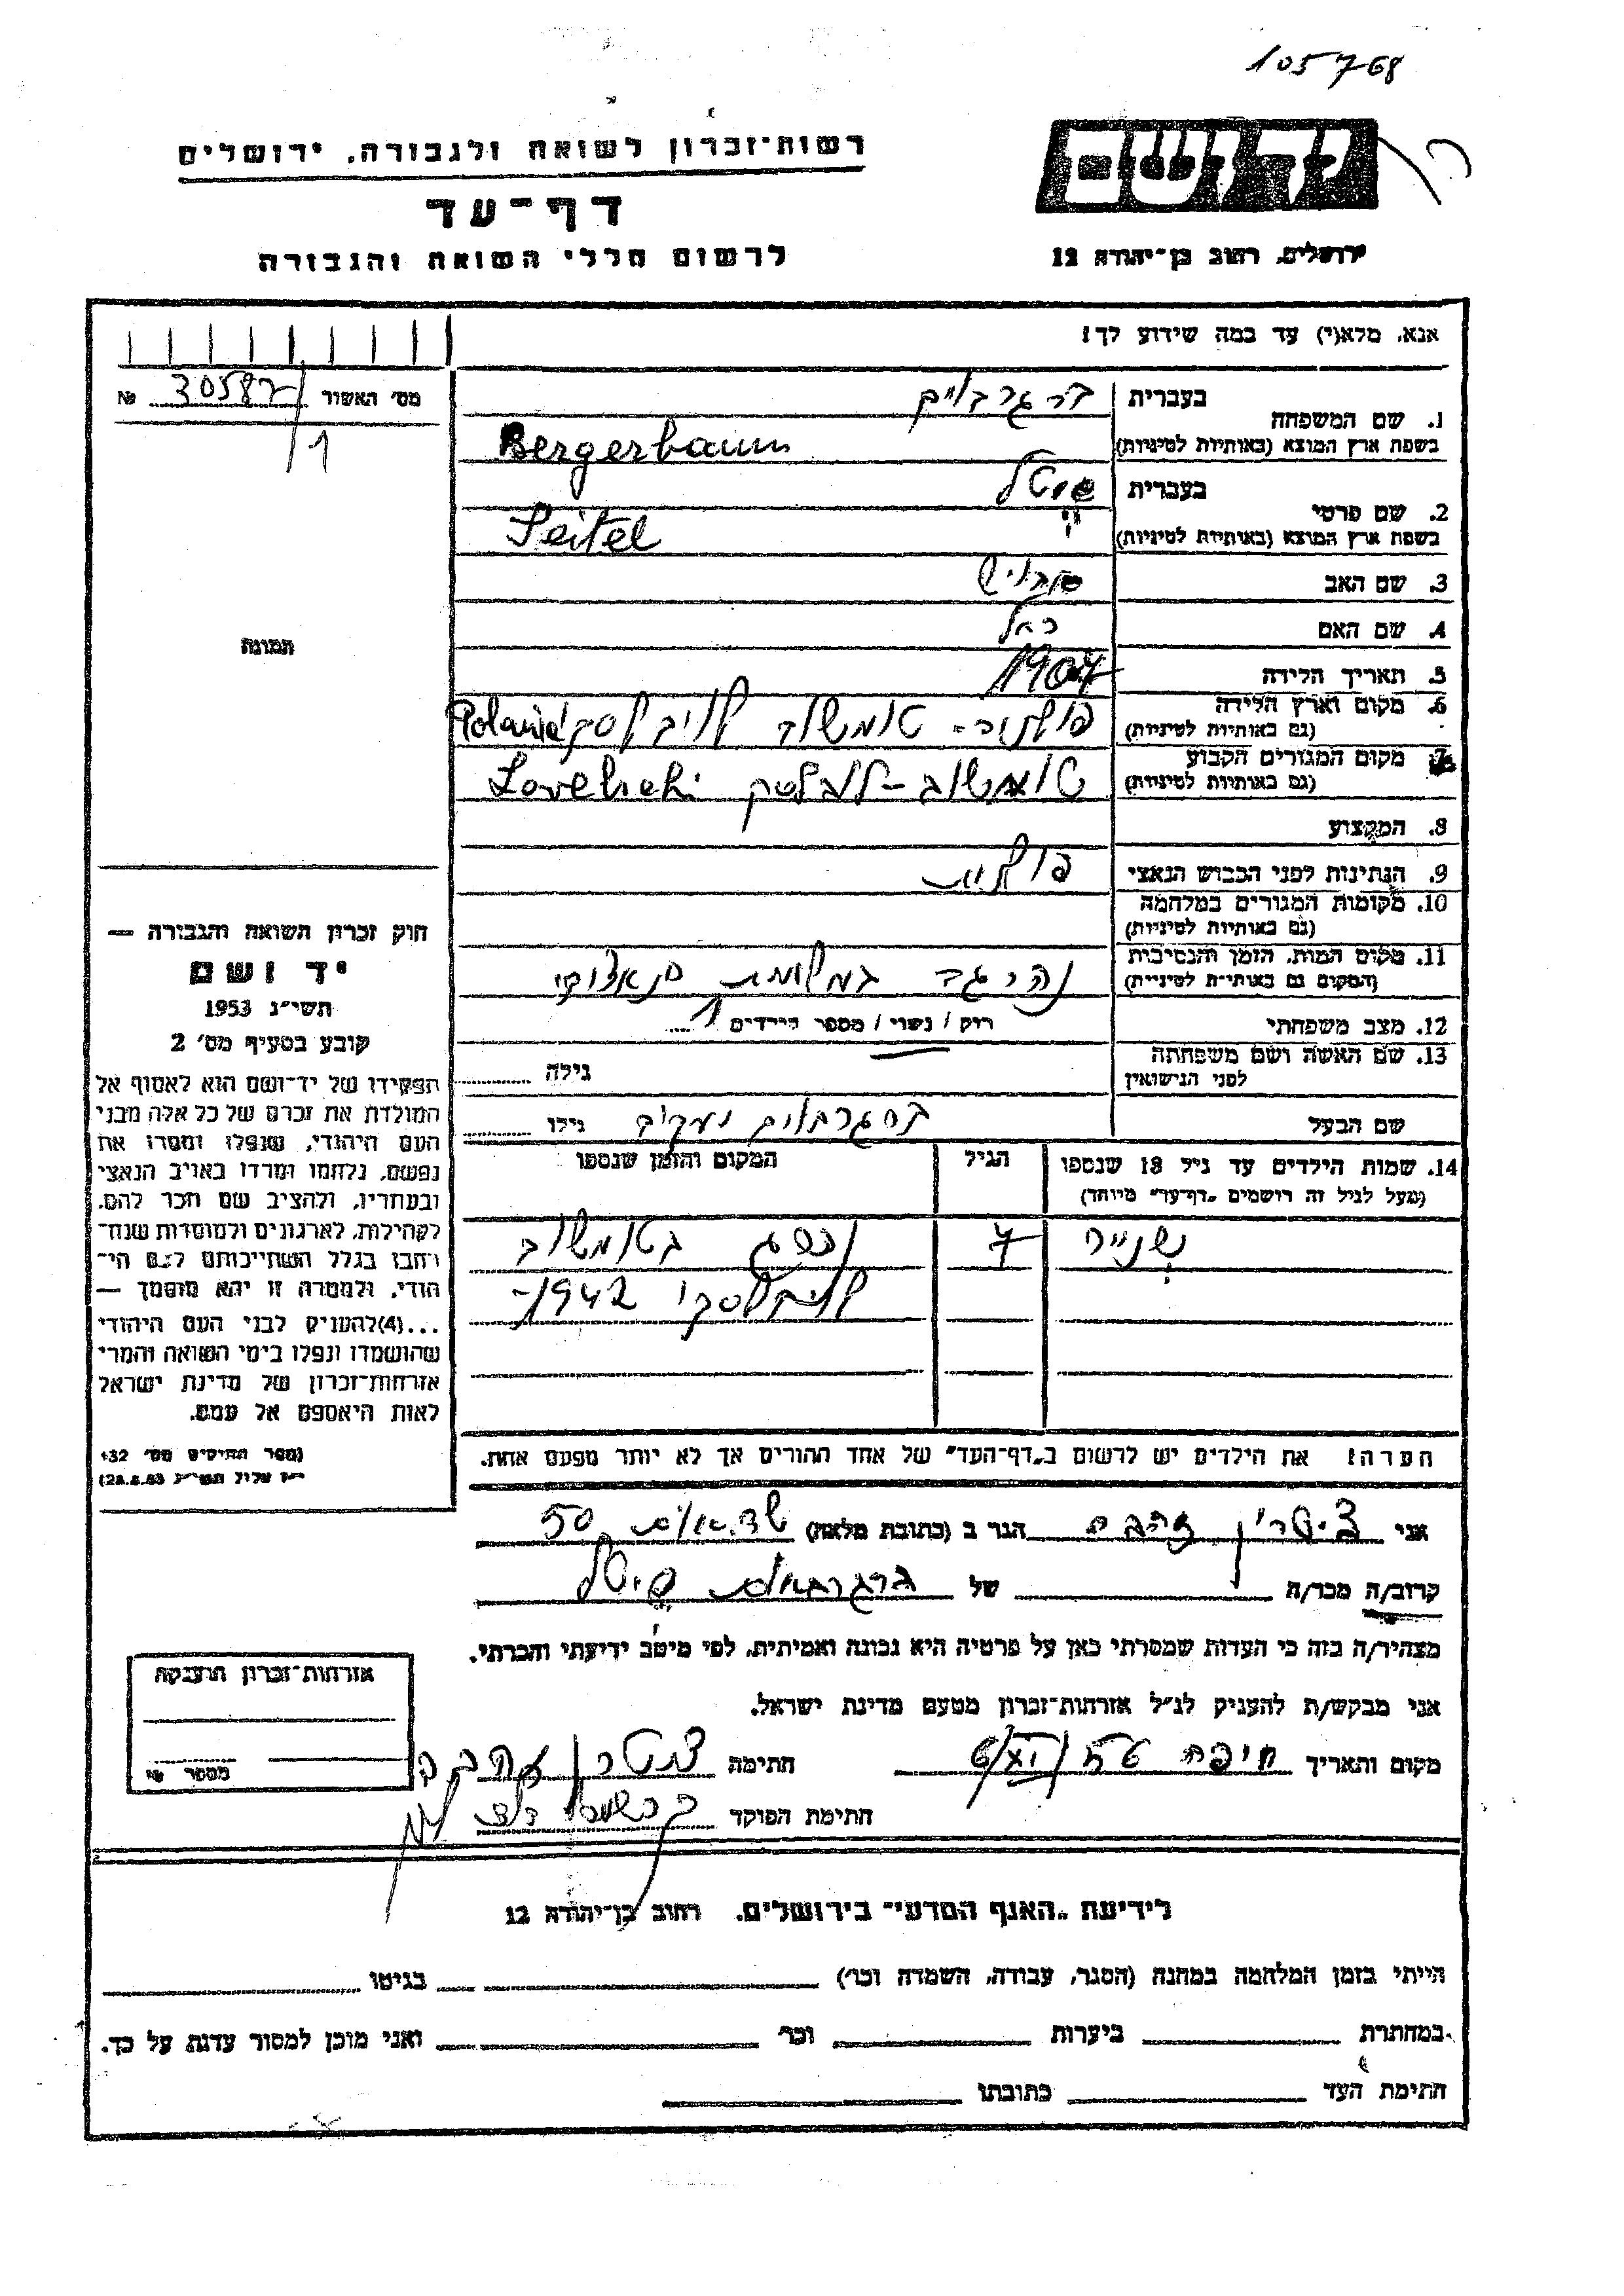 105768
רשות־זכרון לשואה ולגבורה, ירושלים
דף־עד
לרשום חללי השואה והגבורה
יד ושם
ירושלים, רחוב בן־יהודה 12
אנא, מלא(י) עד כמה שידוע לך!
מס׳ האשור 30587/1 №
1. שם המשפחה
בעברית ברגרבוים
בשפת ארץ המוצא (באותיות לטיניות) Bergerbaum
2. שם פרטי
בעברית פייטל
בשפת ארץ המוצא (באותיות לטיניות) Peitel
3. שם האב
4. שם האם רחל
5. תאריך הלידה 1907
6. מקום וארץ הלידה
(גם באותיות לטיניות) פולניה - טומשוב Poland
7. מקום המגורים הקבוע
(גם באותיות לטיניות) טומשוב - לובלסקי Lovelski
8. המקצוע
9. הנתינות לפני הכבוש הנאצי פולנית
10. מקומות המגורים במלחמה
(גם באותיות לטיניות)
11. מקום המות, הזמן והנסיבות
(המקום גם באותיות לטיניות)
12. מצב משפחתי רוק / נשוי / מספר הילדים 1
13. שם האשה ושם משפחתה
לפני הנישואין
גילה
שם הבעל ברגרבוים יעקוב גילו
14. שמות הילדים עד גיל 18 שנספו
(מעל לגיל זה רושמים „דף־עד״ מיוחד)
הגיל
המקום והזמן שנספו
7 בטומשוב
1942
הערה! את הילדים יש לרשום ב„דף־העד״ של אחד ההורים אך לא יותר מפעם אחת.
תמונה
חוק זכרון השואה והגבורה —
יד ושם
תשי״ג 1953
קובע בסעיף מס׳ 2
תפקידו של יד־ושם הוא לאסוף אל
המולדת את זכרם של כל אלה מבני
העם היהודי, שנפלו ומסרו את
נפשם, נלחמו ומרדו באויב הנאצי
ובעוזריו, ולהציב שם וזכר להם,
לקהילות, לארגונים ולמוסדות שנח־
רבו בגלל השתייכותם לעם היי־
הודי, ולמטרה זו יהא מוסמך —
...(4)להעניק לבני העם היהודי
שהושמדו ונפלו בימי השואה והמרי
אזרחות־זכרון של מדינת ישראל
לאות היאספם אל עמם.
(ספר החוקים מס׳ 132
י״ז אלול תשי״ג 28.8.53)
אני ציטרין זהבה הגר ב (כתובת מלאה) 50
קרוב/ה מכר/ה של ברגרבוים פייטל
מצהיר/ה בזה כי העדות שמסרתי כאן על פרטיה היא נכונה ואמיתית, לפי מיטב ידיעתי והכרתי.
אני מבקש/ת להעניק לנ״ל אזרחות־זכרון מטעם מדינת ישראל.
מקום ותאריך חיפה חתימה ציטרין זהבה
חתימת הפוקד
אזרחות־זכרון הוענקה
מספר
לידיעת „האגף המדעי״ בירושלים, רחוב בן־יהודה 12
הייתי בזמן המלחמה במחנה (הסגר, עבודה, השמדה וכו׳) בגיטו
במחתרת ביערות וכו׳ ואני מוכן למסור עדות על כך.
חתימת העד כתובתו